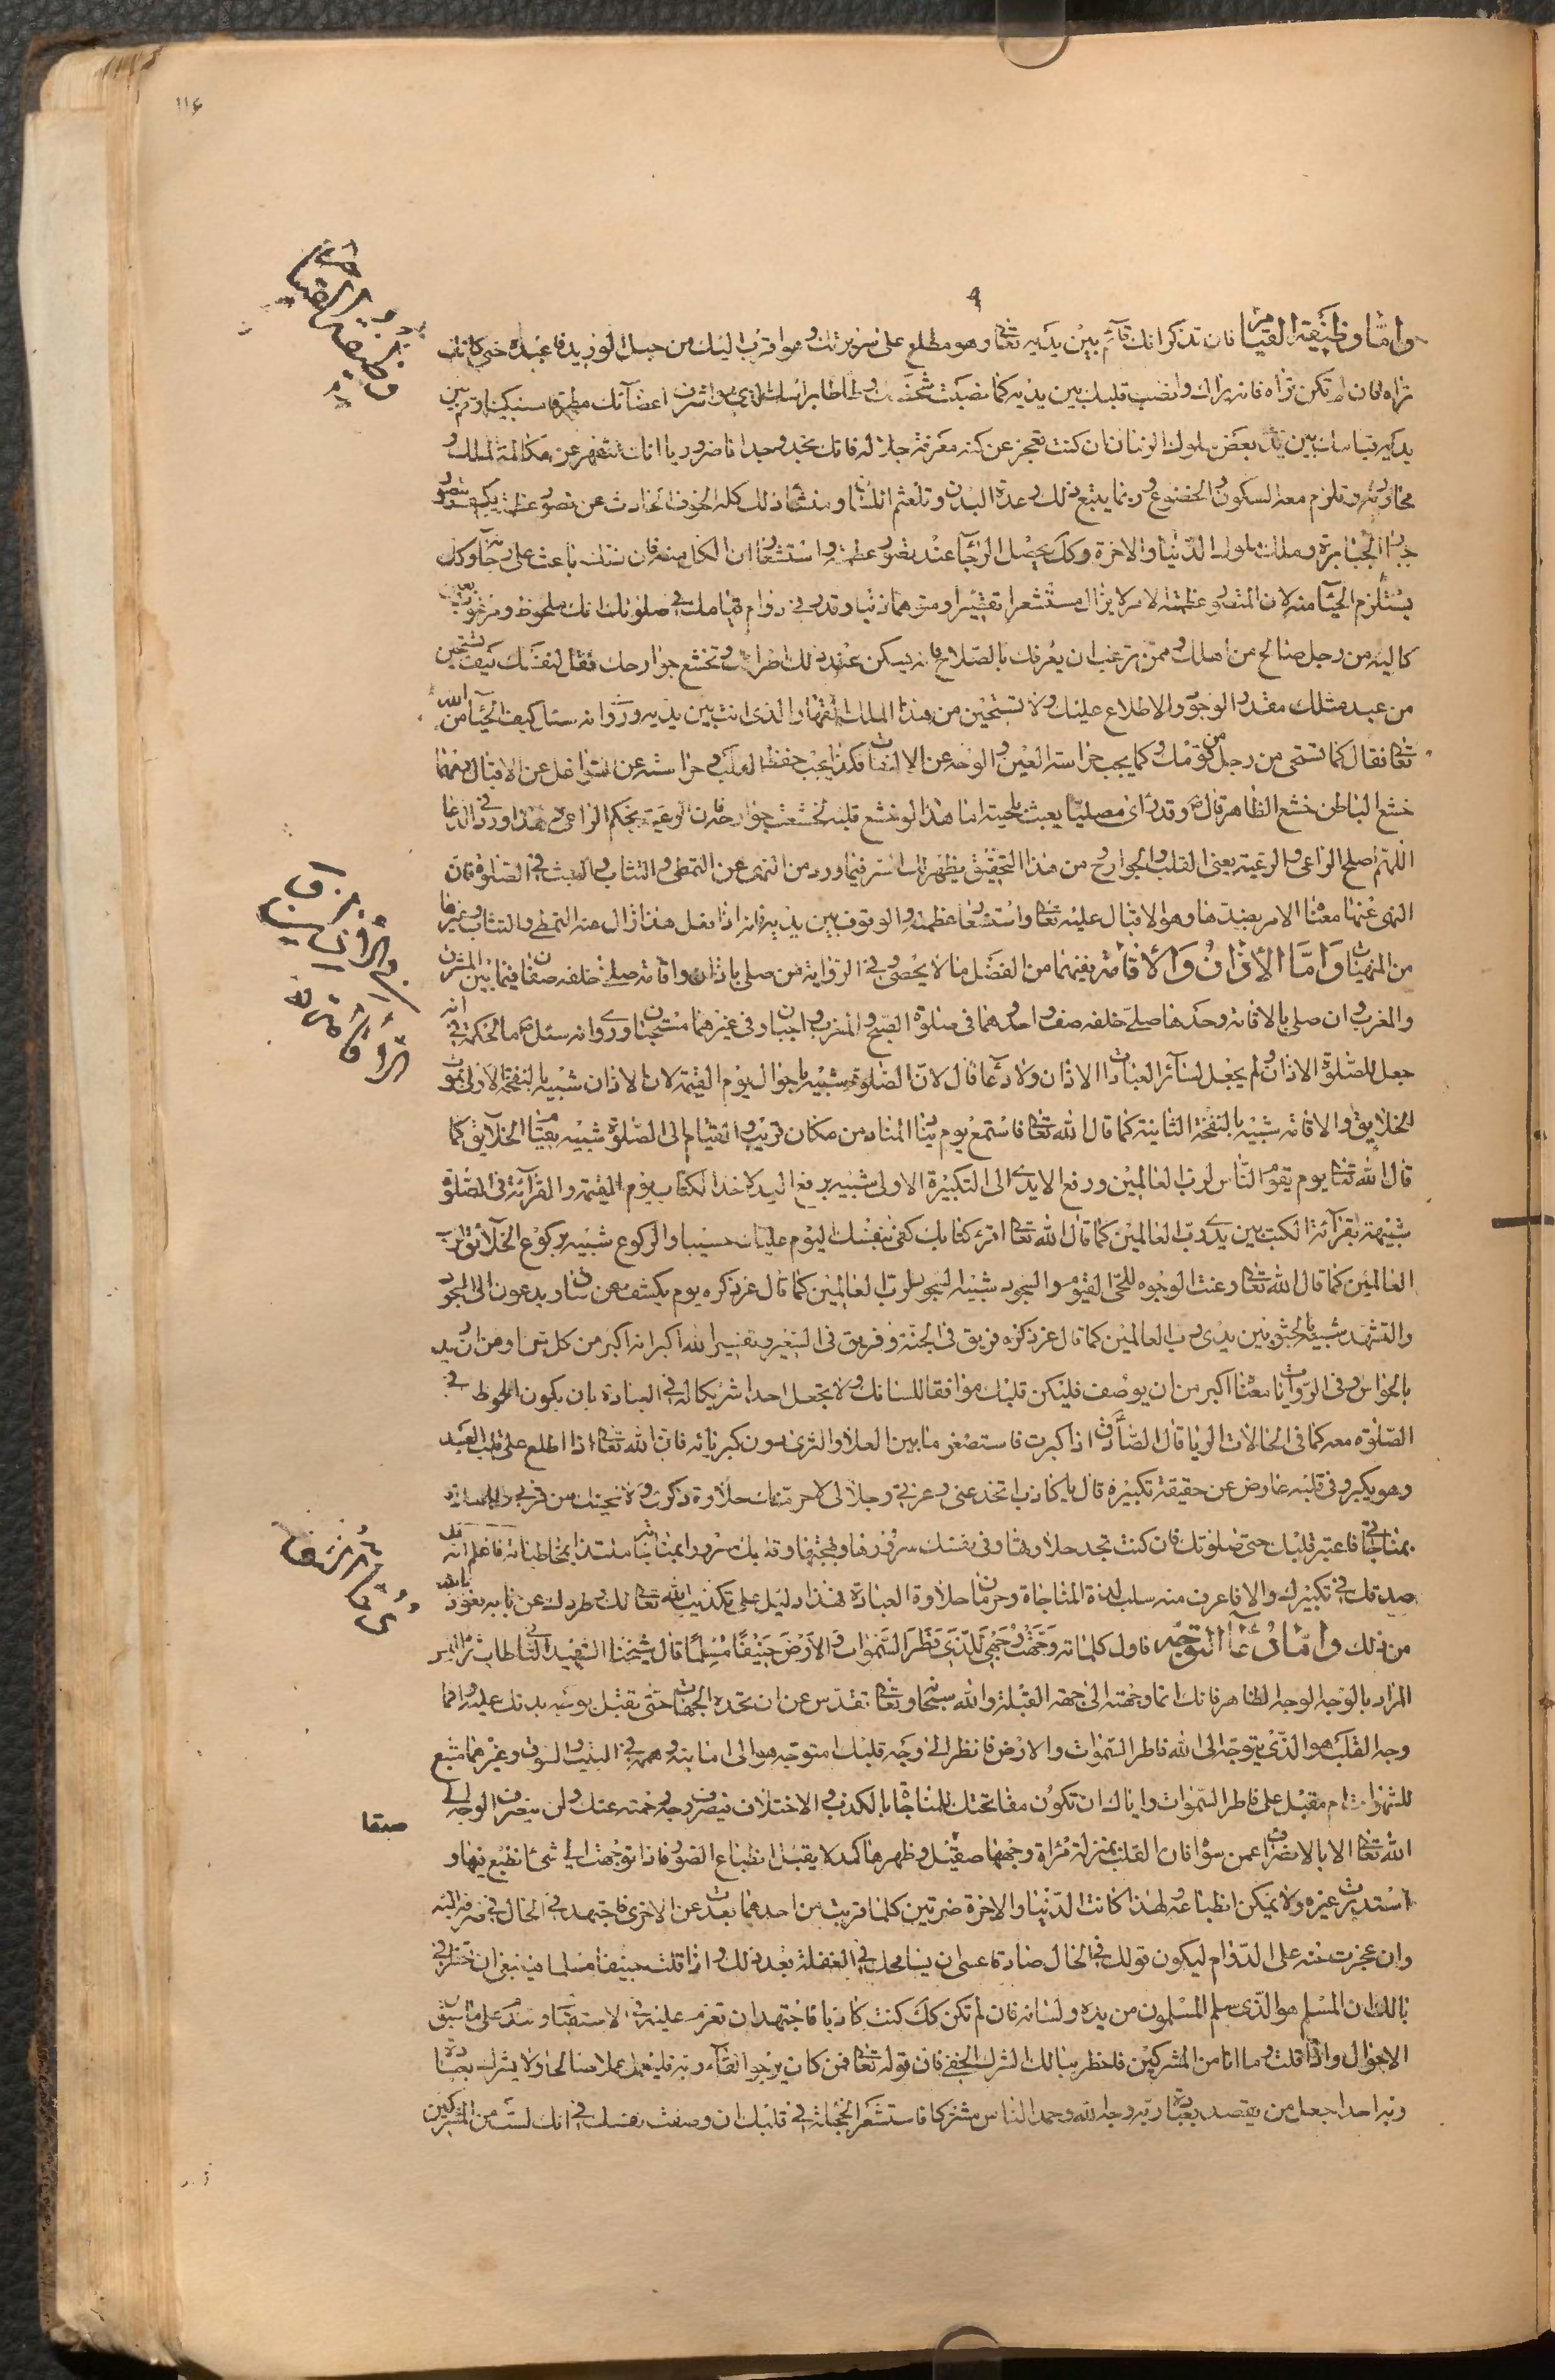 ١١٤
واما وظيفة القيام فان تذكر انك قائم بين يديه تعالى وهو مطلع على سريرتك وهو اقرب اليك من حبل الوريد فاعبده حتى كانك
تراه فان لم تكن تراه فانه يراك وانصب قلبك بين يديه كما نصبت شخصك وطاطا راسك الذي هو اشرف اعضآئك مطرقا مستكينا وقم بين
يديه قيامك بين يدى بعض ملوك الزمان ان كنت تعجز عن كنه معرفة جلاله فانك تجد وجدانا ضروريا انك تنقهر عن مكالمة الملك و
محاورته وتلزم معه السكون والخضوع وربما يتبع ذلك رعدة البدن وتلعثم اللسان ومنشأ ذلك كله الخوف الحادث عن تصور عظمته فكيف يتصور
جبار الجبابرة وملك ملوك الدنيا والاخرة وكك يحصل الرجآء عند تصور عظمته واستشعار ان الكل منه فان ذلك باعث على رجآئه وكك
يستلزم الحيآء منه لان المتصور عظمته لا يزال مستشعرا تقصيرا ومتوهما ذنبا وقدر في دوام قيامك في صلوتك انك ملحوظ ومرقوب بعين
كالية من رجل صالح من اهلك وممن ترغب ان يعرفك بالصلاح فانه يسكن عند ذلك اطرافك وتخشع جوارحك فقل لنفسك كيف تستحين
من عبد مثلك مقدر الوجود والاطلاع عليك ولا تستحين من هذا الملك القهار الذى انت بين يديه وروى انه سئل كيف الحيآء من الله
تعالى فقال كما تستحى من رجل من قومك وكما يجب حراسة العين والوجه عن الالتفات فكذا يجب حفظ القلب وحراسته عن التوغل عن الاقبال فمهما
خشع الباطن خشع الظاهر قال وقد راى مصليا يعبث بلحيته اما هذا لو خشع قلبه لخشعت جوارحه فان الرعية بحكم الراعى ولهذا ورد فى الدعا
اللهم اصلح الراعى والرعية يعنى القلب والجوارح من هذا التحقيق يظهر لك السر فيما ورد من النهى عن التمطى والتثاب والعبث فى الصلوة فان
النهى عنها معناه الامر بضدها وهو الاقبال عليه تعالى واستشعار عظمته والوقوف بين يديه فانه اذا فعل هذا زال عنه التمطى والتثاب وغيرها
من المنهيات واما الاذان والاقامة ففيهما من الفضل ما لا يحصى وفى الرواية من صلى باذان واقامة صلى خلفه صفان فيما بين المشرق
والمغرب وان صلى بالاقامة وحدها صلى خلفه صف واحد وهما فى صلوة الصبح والمغرب واجبان وفى غيرهما مستحبان وروى انه سئل ما الحكمة فى انه
جعل للصلوة الاذان ولم يجعل لسآئر العبادات الاذان ولا دعآء قال لان الصلوة شبيه باحوال يوم القيمة لان الاذان شبيه بالنفخة الاولى لموت
الخلايق والاقامة شبيه بالنفخة الثانية كما قال الله تعالى فاستمع يوم يناد المناد من مكان قريب والقيام الى الصلوة شبيه بقيام الخلآئق كما
قال الله تعالى يوم يقوم الناس لرب العالمين ورفع الايدى الى التكبيرة الاولى شبيه برفع اليد لاخذ الكتاب يوم القيمة والقرآئة فى الصلوة
شبيهة بقرآئة الكتب بين يدى رب العالمين كما قال الله تعالى اقرء كتابك كفى بنفسك اليوم عليك حسيبا والركوع شبيه بركوع الخلآئق لرب
العالمين كما قال الله تعالى وعنت الوجوه للحى القيوم والسجود شبيه السجود لرب العالمين كما قال عز ذكره يوم يكشف عن ساق ويدعون الى السجود
والتشهد شبيه بالجثو بين يدى رب العالمين كما قال عز ذكره فريق فى الجنة وفريق فى السعير وتفسير الله اكبر انه اكبر من كل شئ ومن ان يدرك
بالحواس وفى الروايات معناه اكبر من ان يوصف فليكن قلبك موافقا للسانك ولا تجعل احدا شريكا له فى العبادة بان يكون الملحوظ فى
الصلوة معه كما فى الحالات الريا قال الصادق اذا كبرت فاستصغر ما بين العلا والثرى دون كبريآئه فان الله تعالى اذا اطلع على قلب العبد
وهو يكبر وفى قلبه عارض عن حقيقة تكبيره قال يا كاذب اتخدعنى وعزتى وجلالى لاحرمنك حلاوة ذكرى ولاحجبنك عن قربى والمسارة
بمناجاتى فاعتبر قلبك حين صلوتك فان كنت تجد حلاوتها وفى نفسك سرورها وبهجتها وقلبك مسرورا بمناجاته ملتذا بمخاطباته فاعلم انه قد
صدقك فى تكبيرك والا فاعرف منه سلب لذة المناجاة وحرمان حلاوة العبادة فهذا دليل على تكذيب الله تعالى لك وطردك عن بابه نعوذ بالله
من ذلك واما دعآء التوجه فاول كلماته وجهت وجهى للذى فطر السموات والارض حنيفا مسلما قال شيخنا الشهيد الثانى
المراد بالوجه الوجه الظاهر فانك انما وجهته الى جهة القبلة والله سبحانه وتعالى تقدس عن ان تحده الجهات حتى تقبل بوجه بدنك عليه وانما
وجه القلب هو الذى يتوجه الى الله فاطر السموات والارض فانظر الى وجه قلبك امتوجه هو الى امانيه وهمه فى البيت والسوق وغيرهما متبع
للشهوات ام مقبل على فاطر السموات واياك ان تكون مفاتحتك للمناجاة بالكذب والاختلاق فيصرف وجه رحمته عنك ولن ينصرف الوجه الى
الله تعالى الا بالانصراف عمن سواه فان القلب بمنزلة مرآة وجهها صقيل وظهرها كمد لا يقبل انطباع الصور فاذا توجهت الى شئ انطبع فيها و
استدبرت غيره ولا يمكن انطباعه لهذا كانت الدنيا والاخرة ضرتين كلما قربت من احدهما بعدت عن الاخرى فاجتهد فى الحال فى صرفه اليه
وان عجزت عنه على الدوام ليكون قولك فى الحال صادقا عسى ان يسامحك فى الغفلة بعد ذلك واذا قلت حنيفا مسلما فينبغى ان تخطر فى
بالك ان المسلم هو الذى سلم المسلمون من يده ولسانه فان لم تكن كك كنت كاذبا فاجتهد ان تعزم عليه فى الاستقبال وتندم على ما سبق
الاحوال واذا قلت وما انا من المشركين فاخطر ببالك الشرك الخفى فان قوله تعالى فمن كان يرجوا لقآء ربه فليعمل عملا صالحا ولا يشرك بعبادة
ربه احدا جعل من يقصد بعبادة ربه وجه الله وحمد الناس مشركا فاستشعر الخجلة فى قلبك ان وصفت نفسك فى انك لست من المشركين
وظيفة القيام
صيقا